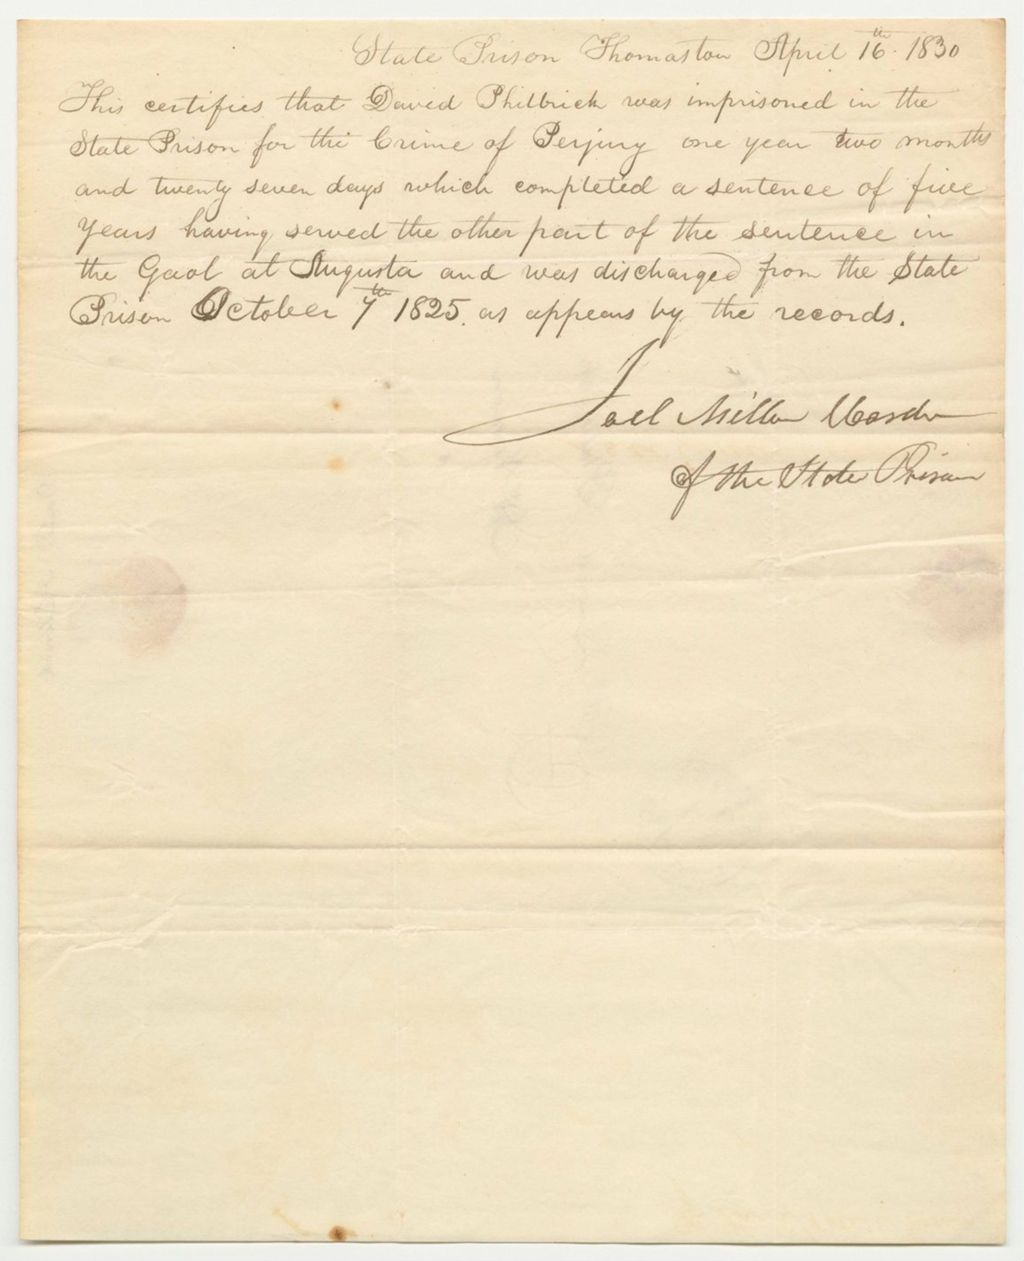 State Prison Thomaston April 16th 1830
This certifies that David Philbrick was imprisoned in the
State Prison for the Crime of Perjury one year two months
and twenty seven days which completed a sentence of five
years having served the other part of the sentence in
the Gaol at Augusta and was discharged from the State
Prison October 7th 1825. as appears by the records.
Joel Miller Warden
of the State Prison